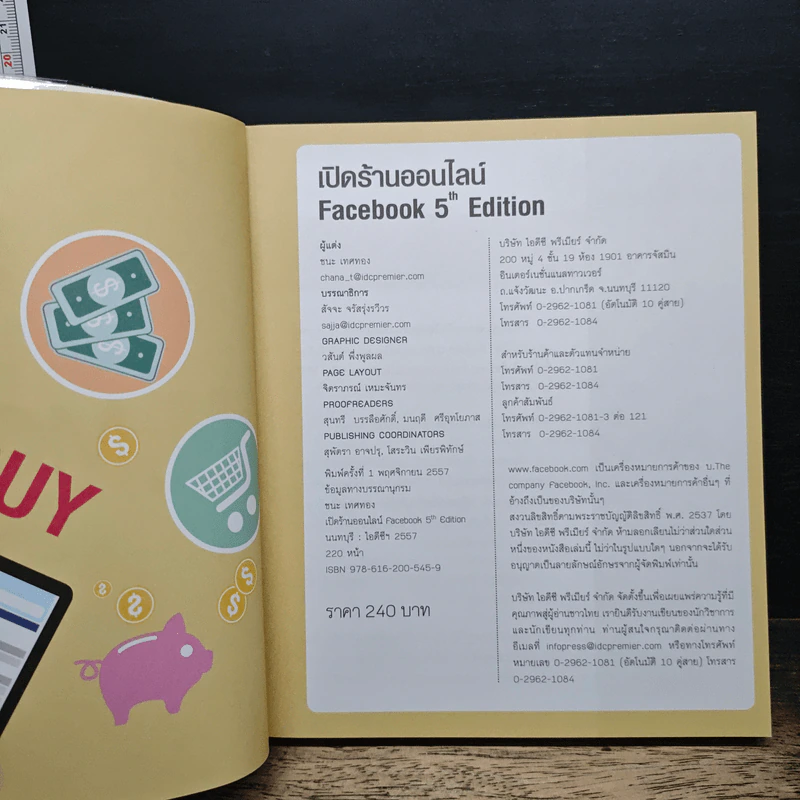 20
21
UY
เปิดร้านออนไลน์
Facebook 5th Edition
ผู้แต่ง
ชนะ เทศทอง
chana_t@idcpremier.com
บรรณาธิการ
สัจจะ จรัสรุ่งรวีวร
sajja@idcpremier.com
GRAPHIC DESIGNER
วสันต์ พึ่งพูลผล
PAGE LAYOUT
จิตราภรณ์ เหมะจันทร
PROOFREADERS
สุนทรี บรรลือศักดิ์, มนฤดี ศรีอุทโยภาส
PUBLISHING COORDINATORS
สุพัตรา อาจปรุ, โสระวิน เพียรพิทักษ์
พิมพ์ครั้งที่ 1 พฤศจิกายน 2557
ข้อมูลทางบรรณานุกรม
ชนะ เทศทอง
เปิดร้านออนไลน์ Facebook 5th Edition
นนทบุรี : ไอดีซีฯ 2557
220 หน้า
ISBN 978-616-200-545-9
ราคา 240 บาท
บริษัท ไอดีซี พรีเมียร์ จำกัด
200 หมู่ 4 ชั้น 19 ห้อง 1901 อาคารจัสมิน
อินเตอร์เนชั่นแนลทาวเวอร์
ถ.แจ้งวัฒนะ อ.ปากเกร็ด จ.นนทบุรี 11120
โทรศัพท์ 0-2962-1081 (อัตโนมัติ 10 คู่สาย)
โทรสาร 0-2962-1084
สำหรับร้านค้าและตัวแทนจำหน่าย
โทรศัพท์ 0-2962-1081
โทรสาร 0-2962-1084
ลูกค้าสัมพันธ์
โทรศัพท์ 0-2962-1081-3 ต่อ 121
โทรสาร 0-2962-1084
www.facebook.com เป็นเครื่องหมายการค้าของ บ.The
company Facebook, Inc. และเครื่องหมายการค้าอื่นๆ ที่
อ้างถึงเป็นของบริษัทนั้นๆ
สงวนลิขสิทธิ์ตามพระราชบัญญัติลิขสิทธิ์ พ.ศ. 2537 โดย
บริษัท ไอดีซี พรีเมียร์ จำกัด ห้ามลอกเลียนไม่ว่าส่วนใดส่วน
หนึ่งของหนังสือเล่มนี้ ไม่ว่าในรูปแบบใดๆ นอกจากจะได้รับ
อนุญาตเป็นลายลักษณ์อักษรจากผู้จัดพิมพ์เท่านั้น
บริษัท ไอดีซี พรีเมียร์ จำกัด จัดตั้งขึ้นเพื่อเผยแพร่ความรู้ที่มี
คุณภาพสู่ผู้อ่านชาวไทย เรายินดีรับงานเขียนของนักวิชาการ
และนักเขียนทุกท่าน ท่านผู้สนใจกรุณาติดต่อผ่านทาง
อีเมลที่ infopress@idcpremier.com หรือทางโทรศัพท์
หมายเลข 0-2962-1081 (อัตโนมัติ 10 คู่สาย) โทรสาร
0-2962-1084